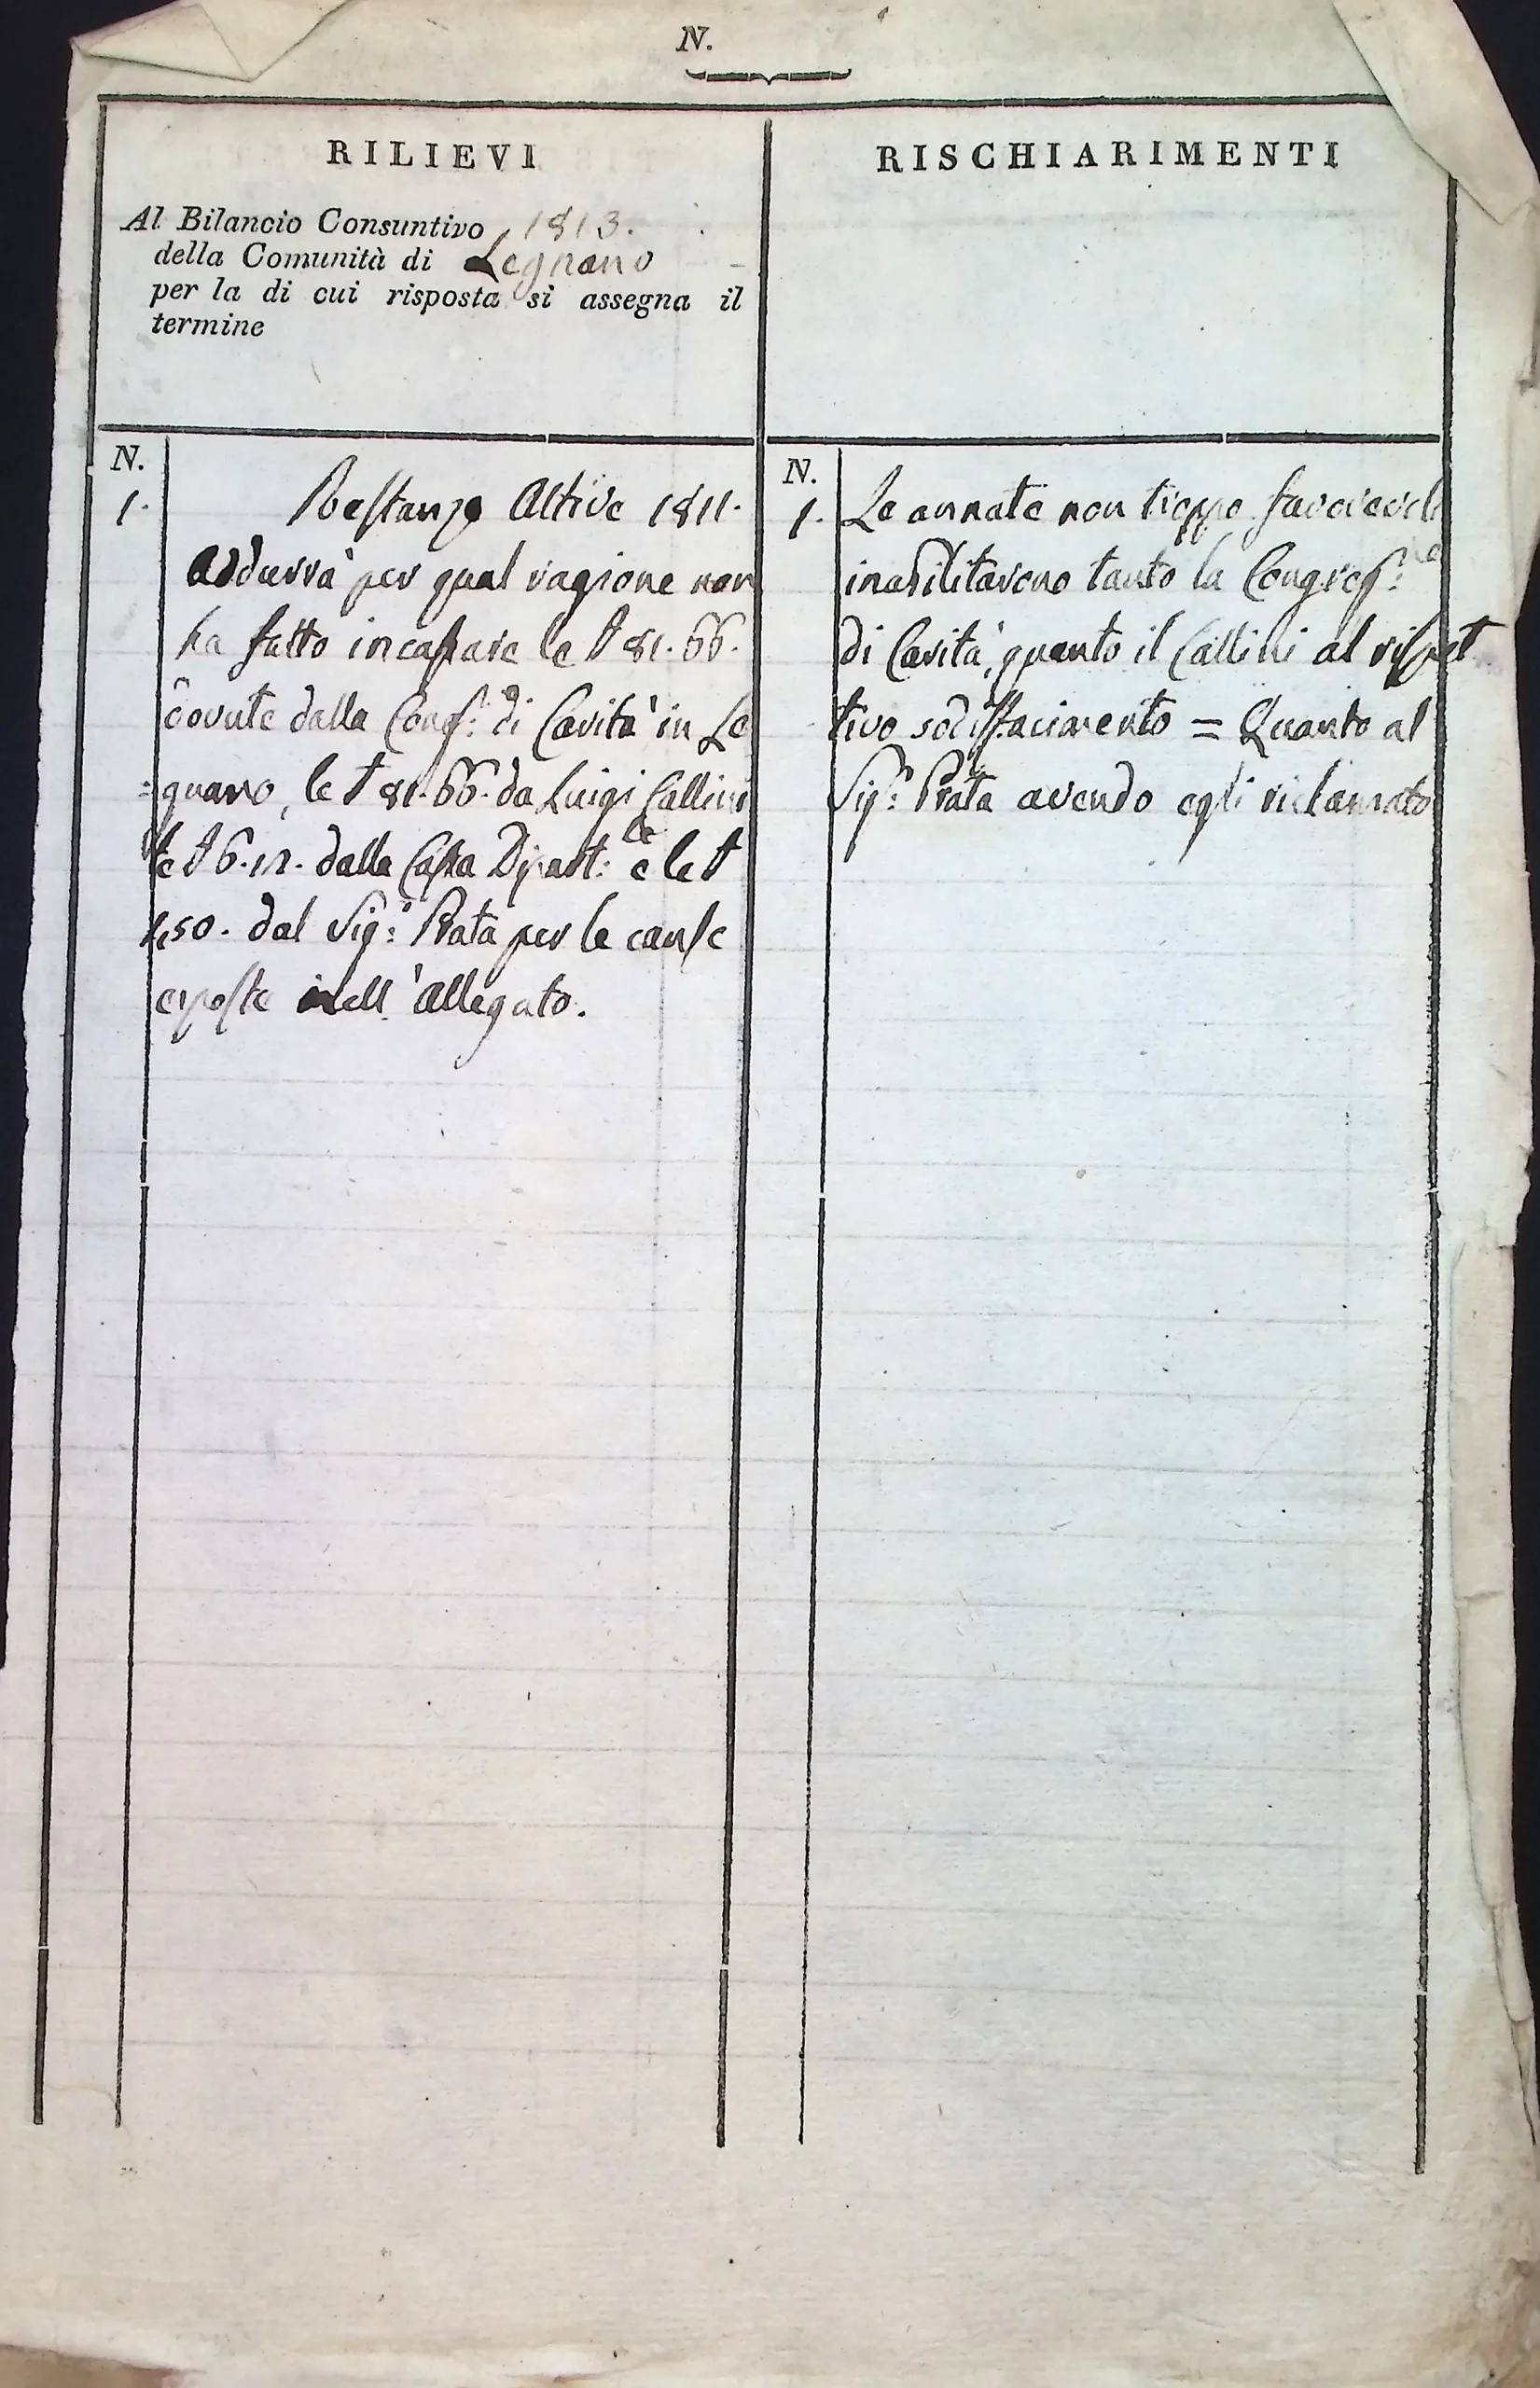 N.
RILIEVI
Al Bilancio Consuntivo 1813.
della Comunità di Legnano
per la di cui risposta si assegna il
termine
N.
1. Restanze Attive 1811.
Addurrà per qual ragione non
ha fatto incassare le £ 81.66.
dovute dalla Cong.: di Carità in Le
=gnano, le £ 81.66. da Luigi Callini
le £ 6.12. dalla Cassa Dipart:le e le £
dal Sig:r Prata per le cause
esposte nell'allegato.
RISCHIARIMENTI
N.
1. Le annate non troppo favorevoli
inabilitarono tanto la Congreg:ne
di Carità, quanto il Callini al rispet
tivo sodisfacimento = Quanto al
Sig:r Prata avendo egli riclamato